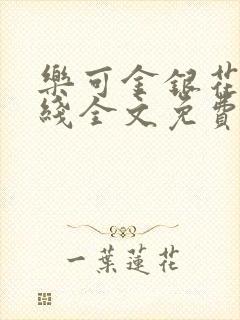 樂可金銀花
綫全文免費
一葉蓮花